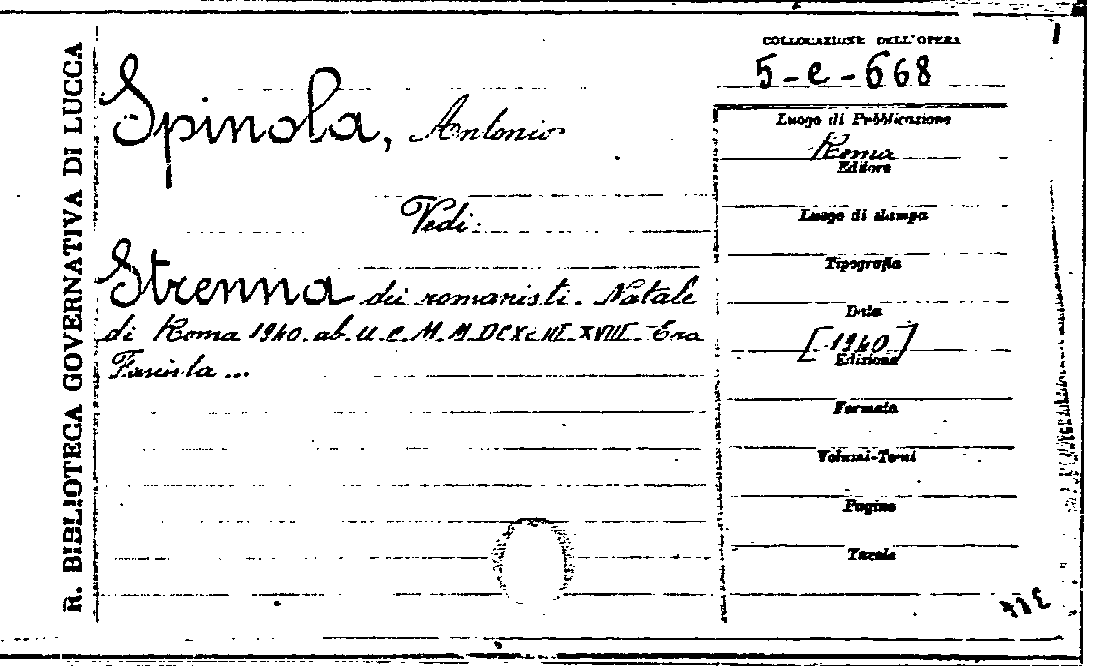 R. BIBLIOTECA GOVERNATIVA DI LUCCA
Spinola, Antonio
Vedi:
Strenna dei romanisti. Natale
di Roma 1940. ab. U. C. M. M. DCXCIII. XVIII Era
Fascista ...
COLLOCAZIONE DELL'OPERA
5-e-668
Luogo di Pubblicazione
Roma
Editore
Luogo di stampa
Tipografia
Data
[1940]
Edizione
Formato
Volumi-Tomi
Pagine
Tavole